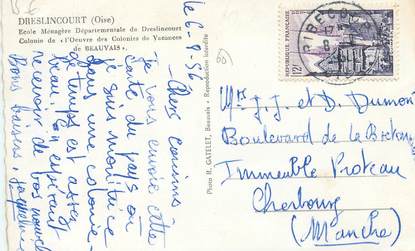 DRESLINCOURT (Oise)
Ecole Ménagère Départementale de Dreslincourt
Colonie de « l'Oeuvre des Colonies de Vacances
de BEAUVAIS »
le 6-8-56
Chers cousins
Je vous envoie cette
carte du pays où
je suis monitrice
dans une colonie.
le temps est assez
beau. En espérant
recevoir de vos nouvelles
Bons baisers, Jacqueline
Photo R. GATELET, Beauvais - Reproduction interdite
RIBECO
17
8
REPUBLIQUE FRANÇAISE
12F
POSTES
J.J. et D. Dumont
Boulevard de la Bretonnière
Immeuble Proteau
Cherbourg
(Manche)